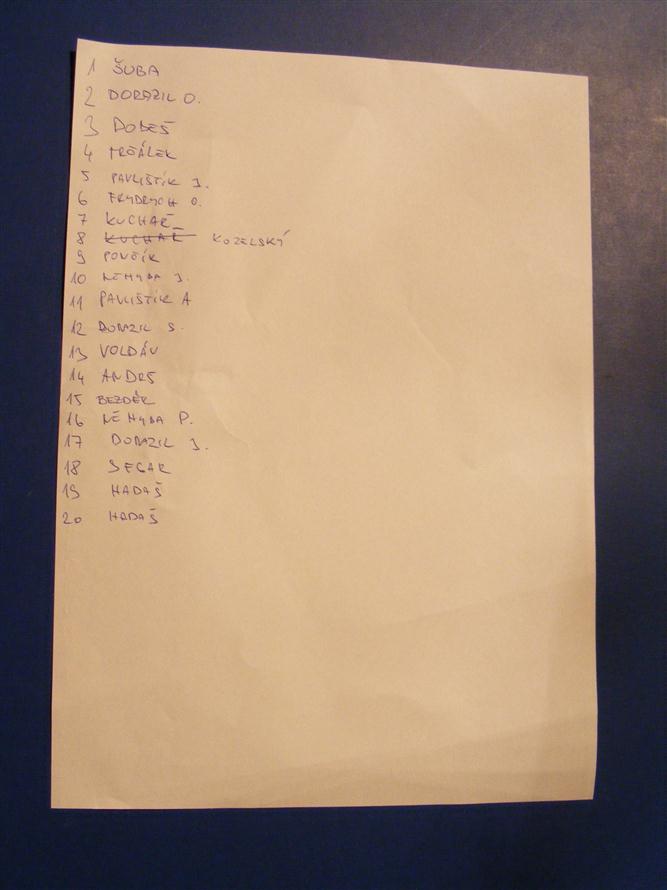 1 ŠUBA
2 DORAZIL O.
3 DOBEŠ
4 TRČÁLEK
5 PAVLIŠTÍK J.
6 FRYDRYCH O.
7 KUCHAŘ
8 KUCHAŘ KOZELSKÝ
9 POVČÍK
10 NĚMYDA J.
11 PAVLIŠTÍK A
12 DORAZIL S.
13 VOLDÁN
14 ANDRŠ
15 BEZDĚK
16 NĚMYDA P.
17 DORAZIL J.
18 SEGAR
19 HADAŠ
20 HADAŠ